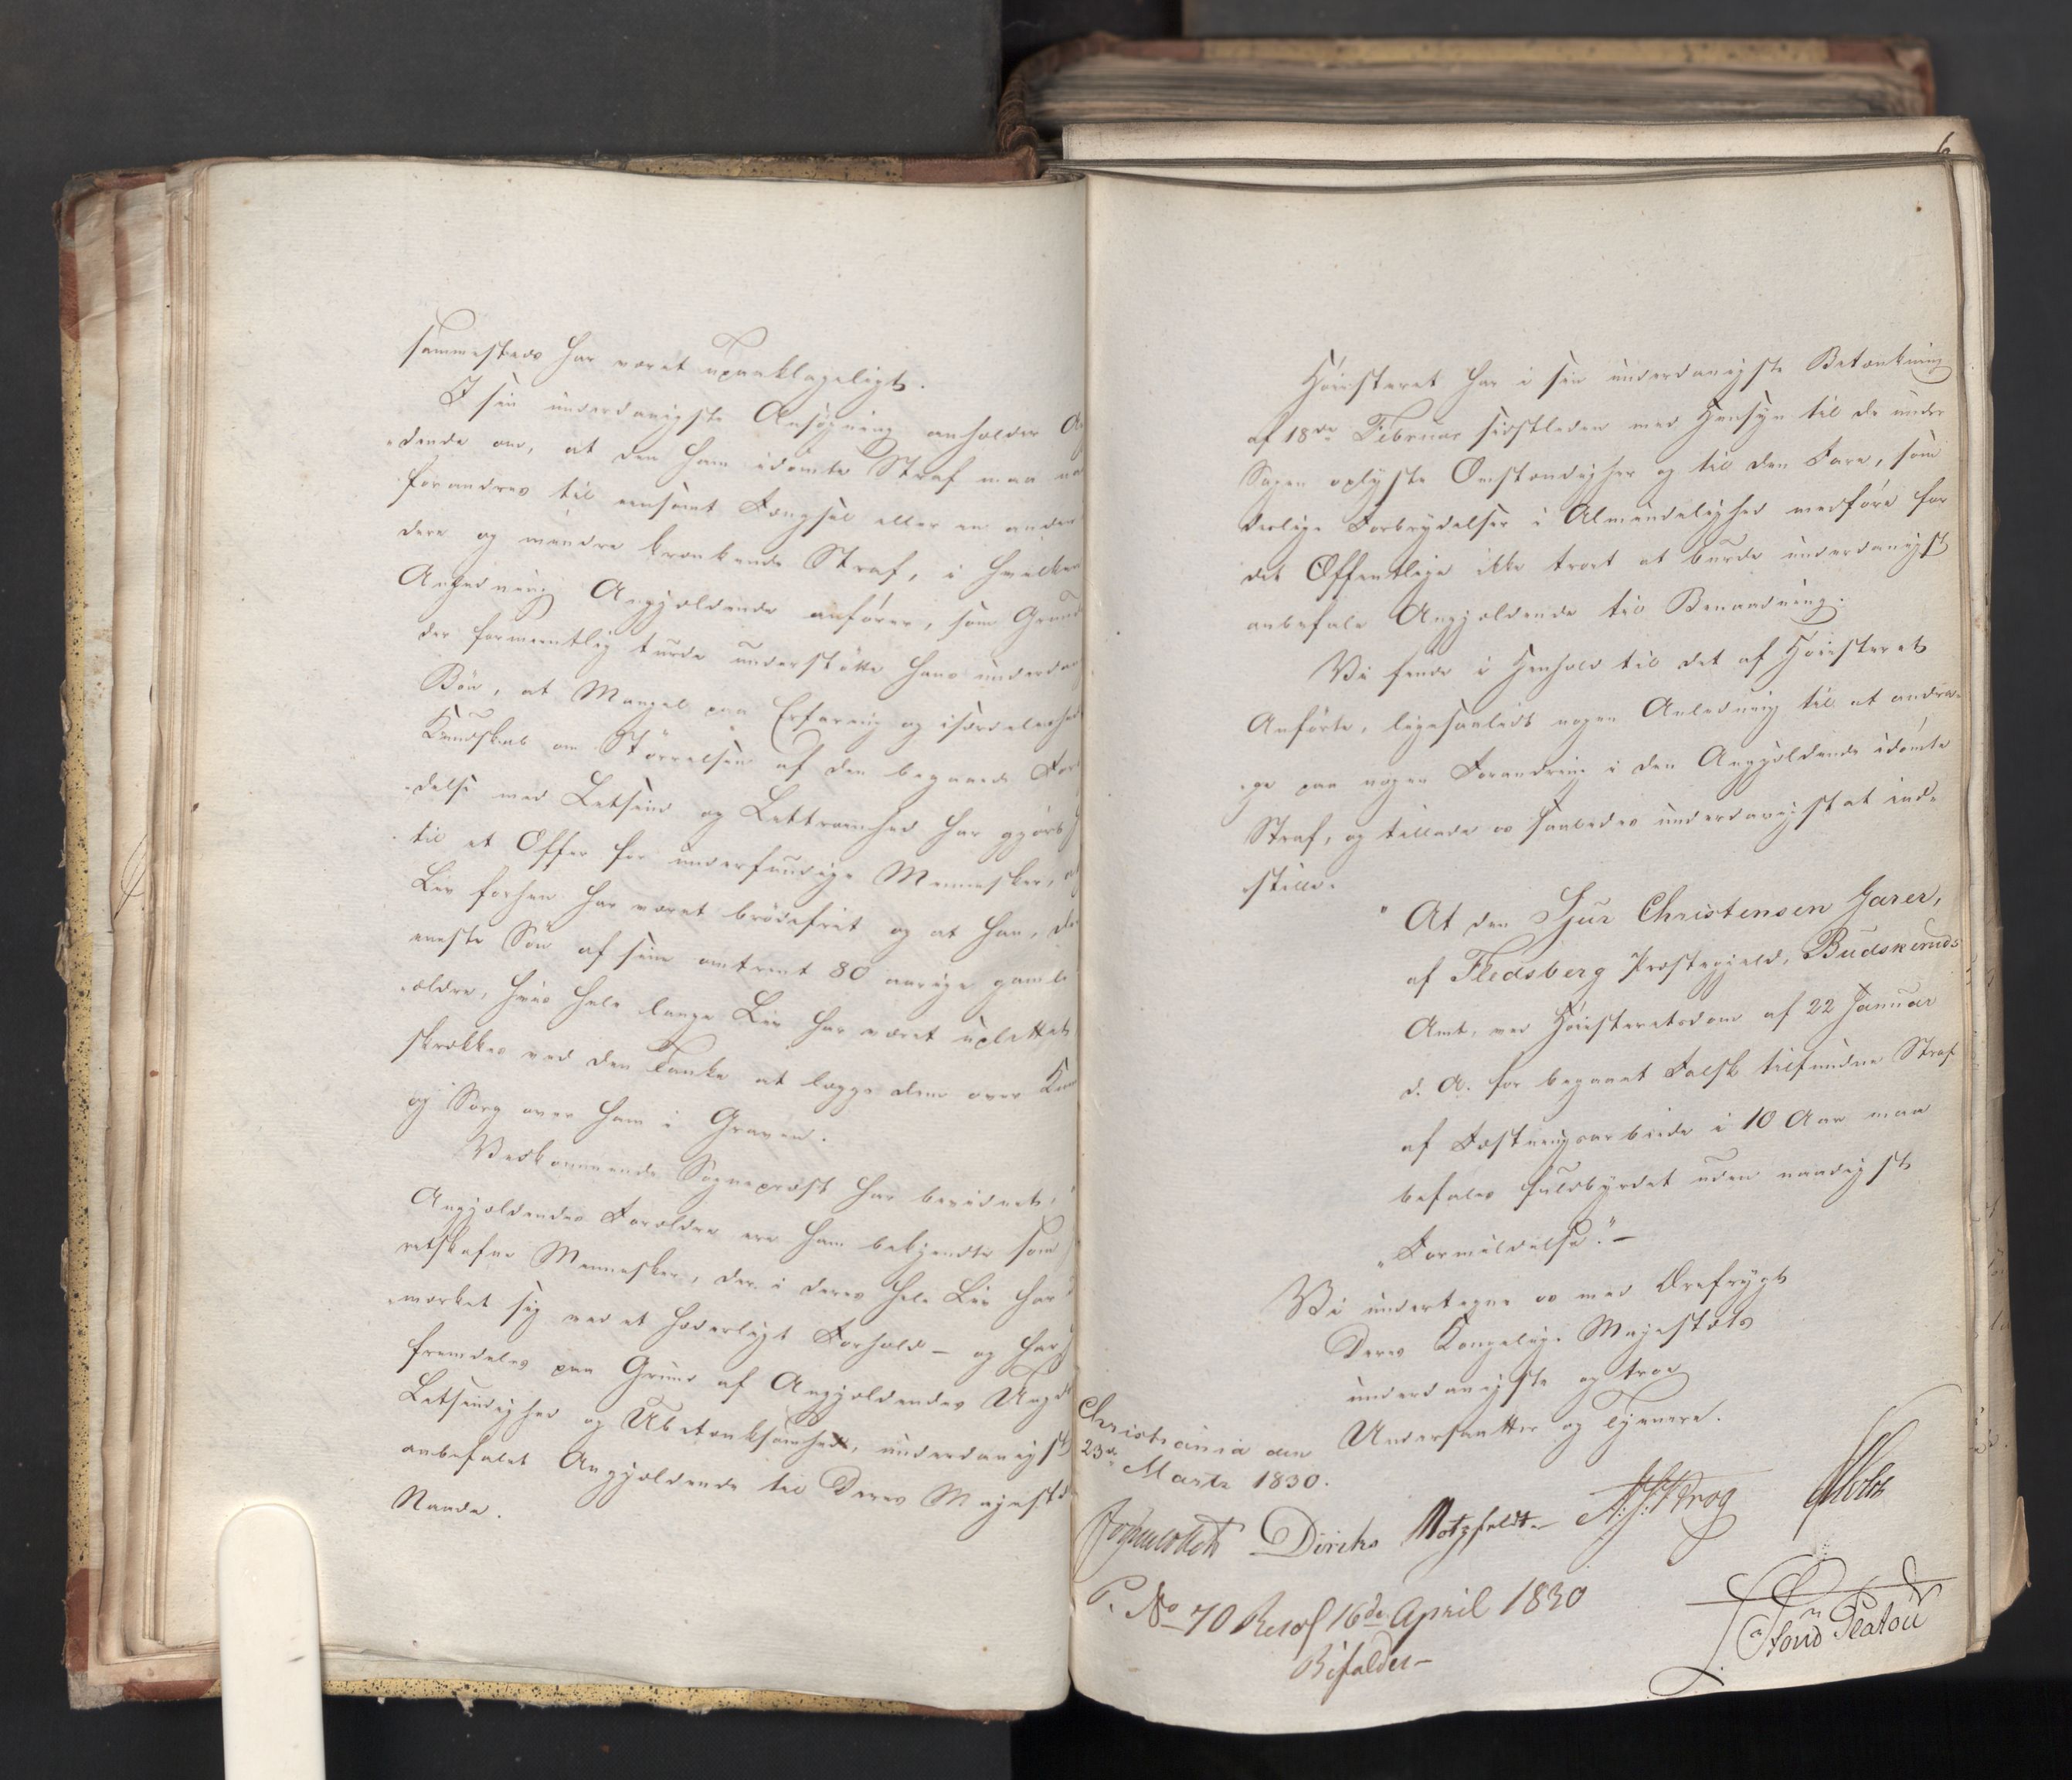 sammesteds har været upaaklageligt.
I sin underdanigste Ansøgning anholder An
-dende om, at den ham idømte Straf maa na
forandres til eensomt Fængsel eller en anden
dere og mindre krænkende Straf, i hvilken
Anledning Angjældende anfører, som Grund
der formeentlig turde understøtte hans underda
Bøn, at Mangel paa Erfaring og isærdeleshed
Kundskab om Størrelsen af den begaaede For
-delse med Letsind og Lettroenhed har gjort
til et Offer for underfundige Mennesker, at
Liv forhen har været brødefrit og at han, den
eneste Søn af sine omtrent 80 aarige gamle
-ældre, hvis hele lange Liv har været uplettet
skrækkes ved den Tanke at lægge dem over Kum
og Sorg over ham i Graven.
Vedkommende Sognepræst har bevidnet,
Angjældendes Forældre ere ham bekjendte som
retskafne Mennesker, der i deres hele Liv har
-mærket sig ved et hæderligt Forhold – og har
fremdeles paa Grund af Angjældendes Ungd
Letsindighed og Ubetænksomhed, underdanigst
anbefalet Angjældende til Deres Majestæ
Naade.
6
Høiesteret har i sin underdanigste Betænkning
af 18de Februar sidstleden med Hensyn til de under
Sagen oplyste Omstændigheder og til den Fare, som
deslige Forbrydelser i Almindelighed medføre for
det Offentlige ikke troet at burde underdanigst
anbefale Angjældende til Benaadning.
Vi finde i Henhold til det af Høiesteret
Anførte, ligesaalidt nogen Anledning til at andra-
-ge paa nogen Forandring i den Angjældende idømte
Straf, og tillade os saaledes underdanigst at ind-
-stille.
"At den Sjur Christensen Garer,
af Fledsberg Præstegjeld, Budskeruds
Amt, ved Høiesteretsdom af 22 Januar
d. A. for begaaet Falsk tilfundne Straf
af Fæstningsarbeide i 10 Aar maa
befales fuldbyrdet uden naadigst
"Formildelse." –
Vi undertegne os med Ærefrygt
Deres Kongelige Majestæts
underdanigste og troe
Undersaatter og Tjenere.
Christiania den
23de Marts 1830.
Diriks Motzfeldt A. J. Krog Holst
P. No 70 Resol 16de April 1830
Bifaldes –
Platou